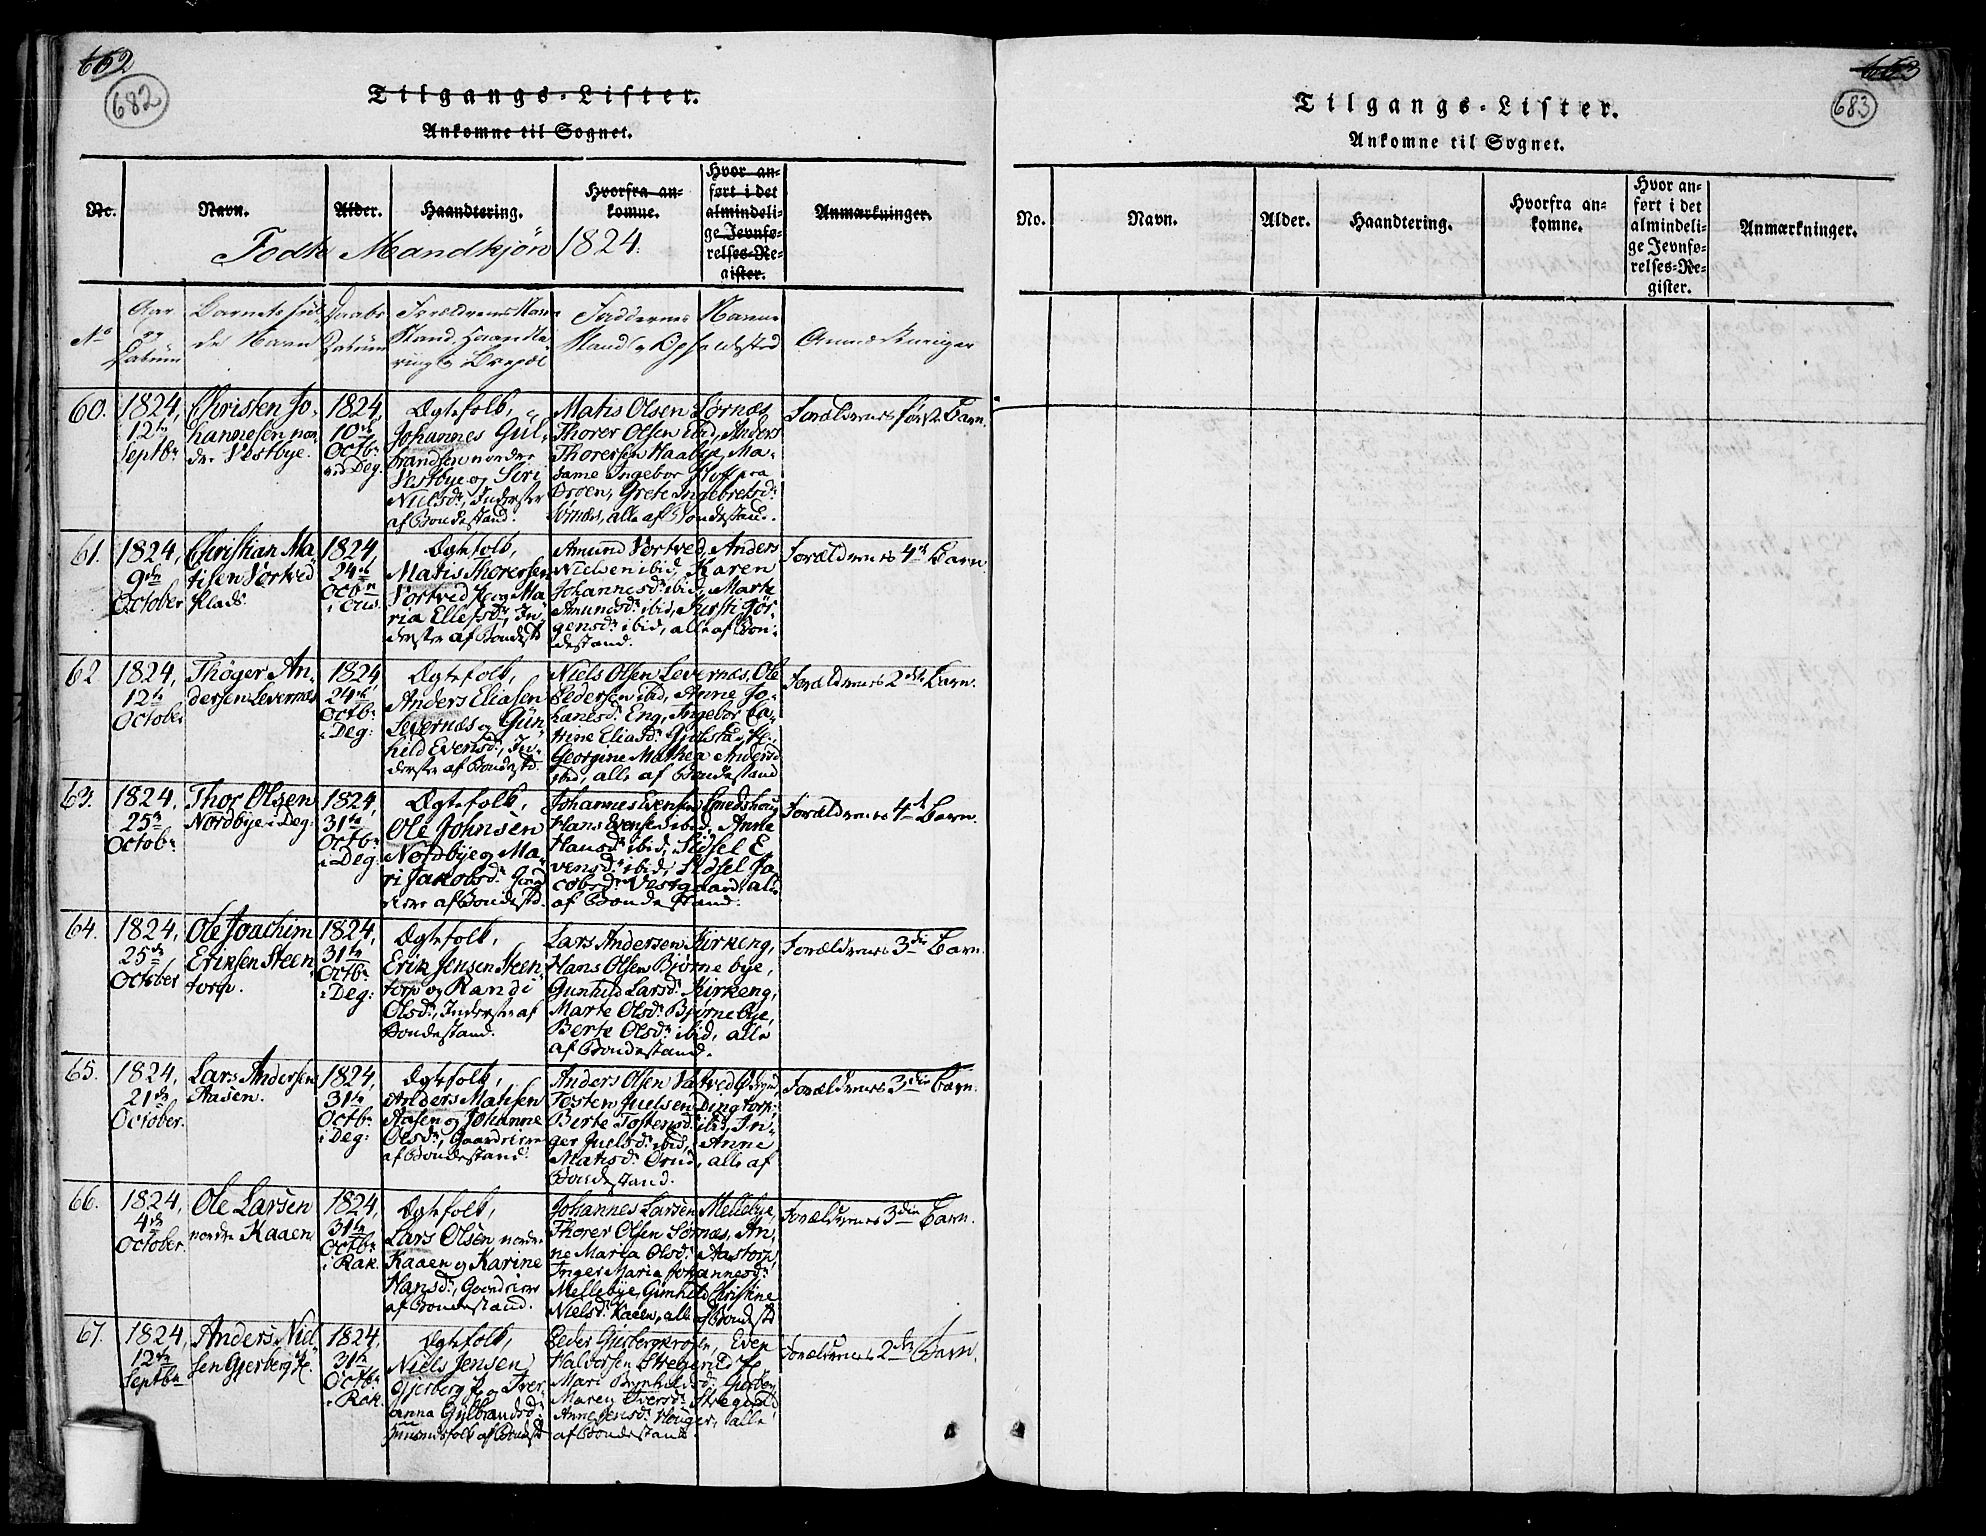 652
682
Tilgangs-Lister.
Ankomne til Sognet.
No.
Navn.
Alder.
Haandtering.
Hvorfra an-
komne.
Hvor an-
ført i det
almindeli-
ge Jevnfø-
relses-Re-
gister.
Anmærkninger.
Fødte Mandkjön 1824.
No
Aar
og
Datum
Barnets ful-
de Navn
Daabs
Datum
Forældrenes Navn
Stand, Haandte-
ring og Bopæl
Faddernes Navne
Stand og Opholdsted
Anmærkninger
60.
1824,
12te
Septbr
Christen Jo-
hannesen nor-
dre Vestbye.
1824,
10de
Octbr
ved Deg.
Ægtefolk,
Johannes Gül-
brandsen nordre
Vestbye og Siri
Nielsdr, Inderster
af Bondestand.
Matis Olsen Sørnæs,
Thorer Olsen ibid, Anders
Thorersen Haabye, Ma-
dame Ingebor Hoff paa
Broen, Grete Ingebretsdr
Sørnæs, alle af Bondestand.
Forældrenes første Barn.
61.
1824,
9de
October
Christian Ma-
tisen Vortved
Plads.
1824,
24de
Octbr
Ægtefolk,
Matis Thorersen
Vortved Pl. og Ma-
ria Ellefsdr, In-
derster af Bondestd
Amund Vortved, Anders
Nielsen ibid, Karen
Johannesdr ibid, Marte
Amundsdr ibid, Kirsti Jör-
gensdr ibid, alle af Bon-
destand.
Forældrenes 4de Barn.
62
1824,
12te
October
Thöger An-
dersen Levernæs
1824,
24de
Octbr
i Deg:
Ægtefolk,
Anders Eliasen
Levernæs og Gün-
hild Evensdr, In-
derster af Bondestd.
Niels Olsen Levernæs, Ole
Pedersen ibid, Anne Jo-
hanesdr Eng, Ingebor Ca-
trine Eliasdr
Georgine Mathea Andersd
ibid, alle af Bondestand
Forældrenes 2det Barn.
63.
1824,
25de
Octobr
Thor Olsen
Nordbye i Deg:
1824,
31te
Octbr
i Deg.
Ægtefolk,
Ole Johnsen
Nordbye og Ma-
ri Jakobsdr, Gaard-
riere af Bondestd.
Johannes Evensen Smedshaug
Hans Evensen ibid, Anne
Hansdr ibid, Sidsel E-
vensdr ibid, Sidsel Ja-
cobsdr Vestgaard, alle
af Bondestand.
Forældrenes 4de Barn.
64.
1824,
25de
October
Ole Joachim
Eriksen Steen-
torp.
1824,
31te
Octbr
i Deg:
Ægtefolk,
Erik Jensen Steen-
torp og Randi
Olsdr, Inderster af
Bondestand.
Lars Andersen Kirkeng,
Hans Olsen Bjørnebye,
Gunhild Larsdr Kirkeng,
Marte Olsdr Bjørnebye,
Berte Olsdr ibid, alle
af Bondestand.
Forældrenes 3die Barn.
65.
1824,
21de
October.
Lars Andersen
Aasen.
1824,
31te
Octbr
i Deg:
Ægtefolk,
Anders Matisen
Aasen og Johanne
Olsdr, Gaardriere
af Bondestand.
Anders Olsen Vatvedt
Tosten Juelsen Dingtorp,
Berte Tostensdr ibid, In-
ger Juelsdr ibid, Anne
Matisdr Orud, alle af
Bondestand.
Forældrenes 3die Barn.
66.
1824,
4de
October.
Ole Larsen
nordre Kaaen
1824,
31te
Octbr
i Rak.
Ægtefolk,
Lars Olsen nordre
Kaaen og Karine
Hansdr, Gaardriere
af Bondestand.
Johannes Larsen Mellebye,
Thorer Olsen Sørnæs, An-
ne Maria Olsdr Aastorp,
Inger Maria Johannesdr
Mellebye, Gunhild Christine
Nielsdr Kaaen, alle af Bondestd
Forældrenes 3die Barn.
67.
1824,
12te
Septbr
Anders Niel-
sen Gjerberg Pl.
1824,
31te
Octbr
i Rak.
Ægtefolk,
Niels Jensen
Gjerberg Pl. og Iver-
anna Gülbrandsdr
Huusmdsfolk af Bondestd
Peder Gjerbergkroken, Even
Halvorsen Stegerud Pl.
Mari Gjerberg
Maren Iversdr Stegerud
Anne Jensdr Houger, alle
af Bondestand.
Forældrenes 2det Barn.
653
683
Tilgangs-Lister.
Ankomne til Sognet.
No.
Navn.
Alder.
Haandtering.
Hvorfra an-
komne.
Hvor an-
ført i det
almindeli-
ge Jevnfø-
relses-Re-
gister.
Anmærkninger.